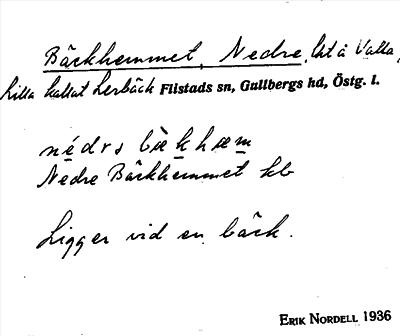 Bäckhemmet, Nedre, lht å Valla,
Lilla kallat Lerbäck Flistads sn, Gullbergs hd, Östg. l.
Nedre Bäckhemmet kb
Ligger vid en bäck.
ERIK NORDELL 1936